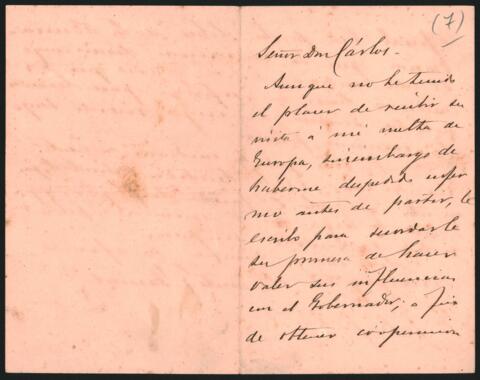 (7)
Señor Don Cárlos.
Aunque no he tenido
el placer de recibir su
visita á mi vuelta de
Europa, sinembargo de
haberme despedido
antes de partir, le
escribo para recordarle
su promesa de hacer
valer sus influencias
con el Gobernador, a fin
de obtener cooperacion